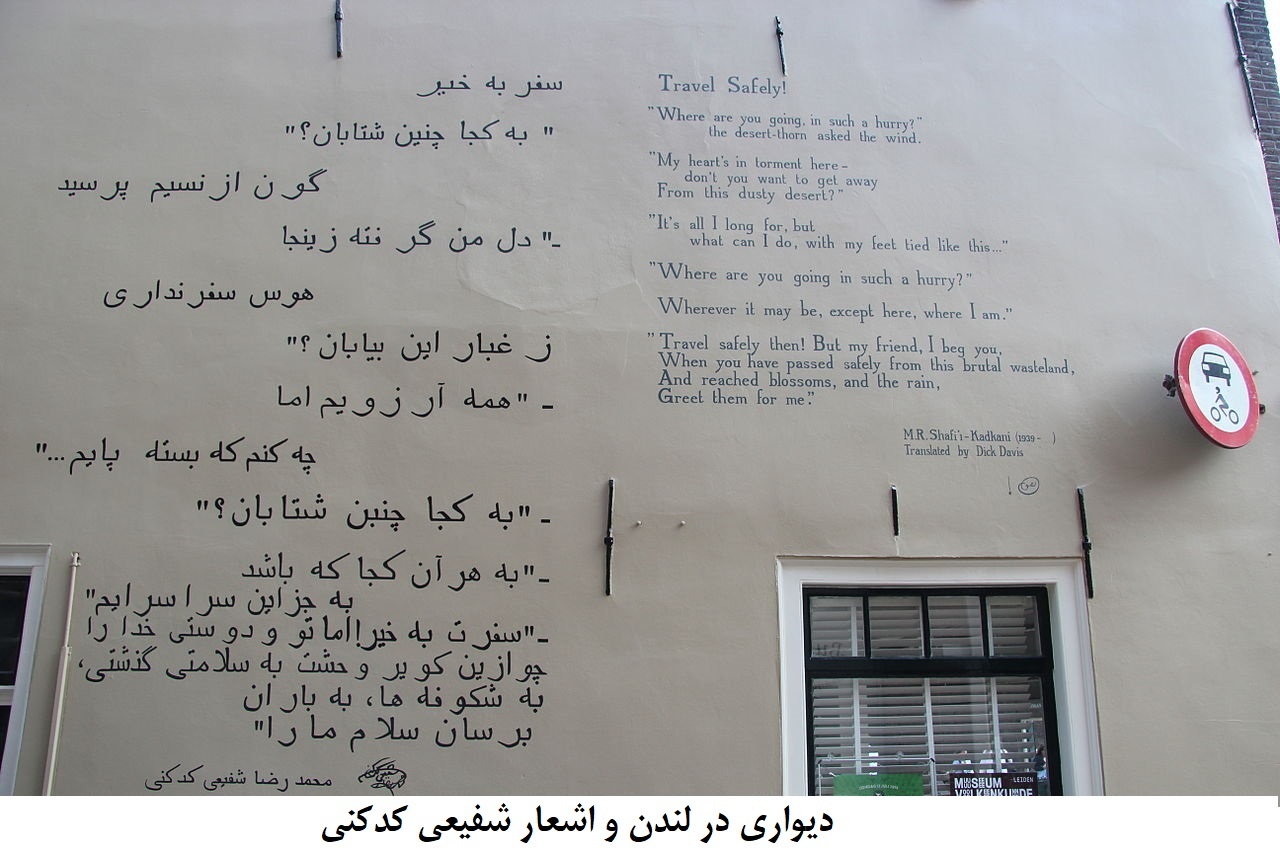 سفر به خیر
" به کجا چنین شتابان؟"
گون از نسیم پرسید
ـ" دل من گرفته زینجا
هوس سفرنداری
ز غبار این بیابان؟"
ـ "همه آرزویم اما
چه کنم که بسته پایم..."
ـ "به کجا چنین شتابان؟"
ـ"به هر آن کجا که باشد
به جزاین سرا سرایم"
ـ"سفرت به خیر!اماتو و دوستی خدا را
چوازین کویر وحشت به سلامتی گذشتی،
به شکوفه ها، به باران
برسان سلام ما را"
محمد رضا شفیعی کدکنی
Travel Safely!
"Where are you going, in such a hurry?"
the desert-thorn asked the wind.
"My heart's in torment here –
don't you want to get away
From this dusty desert?"
"It's all I long for, but
what can I do, with my feet tied like this..."
"Where are you going in such a hurry?"
Wherever it may be, except here, where I am."
"Travel safely then! But my friend, I beg you,
When you have passed safely from this brutal wasteland,
And reached blossoms, and the rain,
Greet them for me."
M.R. Shafi'i-Kadkani (1939 - )
Translated by Dick Davis
MUSEUM
VOLKENKUNDE
LEIDEN
دیواری در لندن و اشعار شفیعی کدکنی